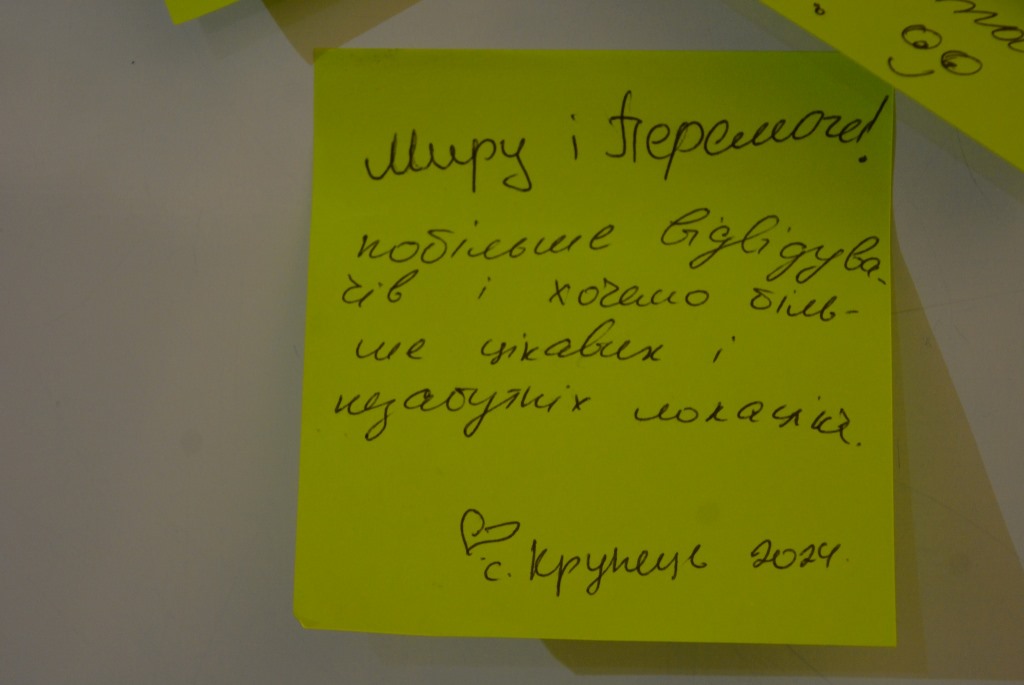 Миру і Перемоги!
побільше відвідува-
чів і хочемо біль-
ше цікавих і
незабутніх локацій.
с. Крупець 2024